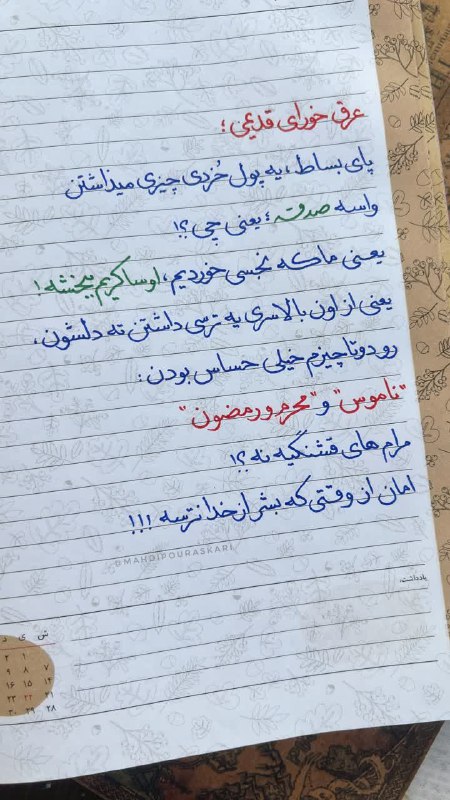 عرق خورای قدیمی ؛
پای بساط، یه پول خُردی چیزی میذاشتن
واسه صدقه ؛ یعنی چی ؟!
یعنی ما که نجسی خوردیم، اوسا کریم ببخشه !
یعنی از اون بالاسری یه ترسی داشتن ته دلشون،
رو دوتا چیزم خیلی حساس بودن :
"ناموس" و "محرم و رمضون"
مرام های قشنگیه نه ؟!
امان از وقتی که بشر از خدا نترسه !!!
@MAHDIPOURASKARI
یادداشت:
ش ی د
۱ ۲
۷ ۸ ۹
۱۴ ۱۵ ۱۶
۲۱ ۲۲ ۲۳
۲۸ ۲۹ ۳۰